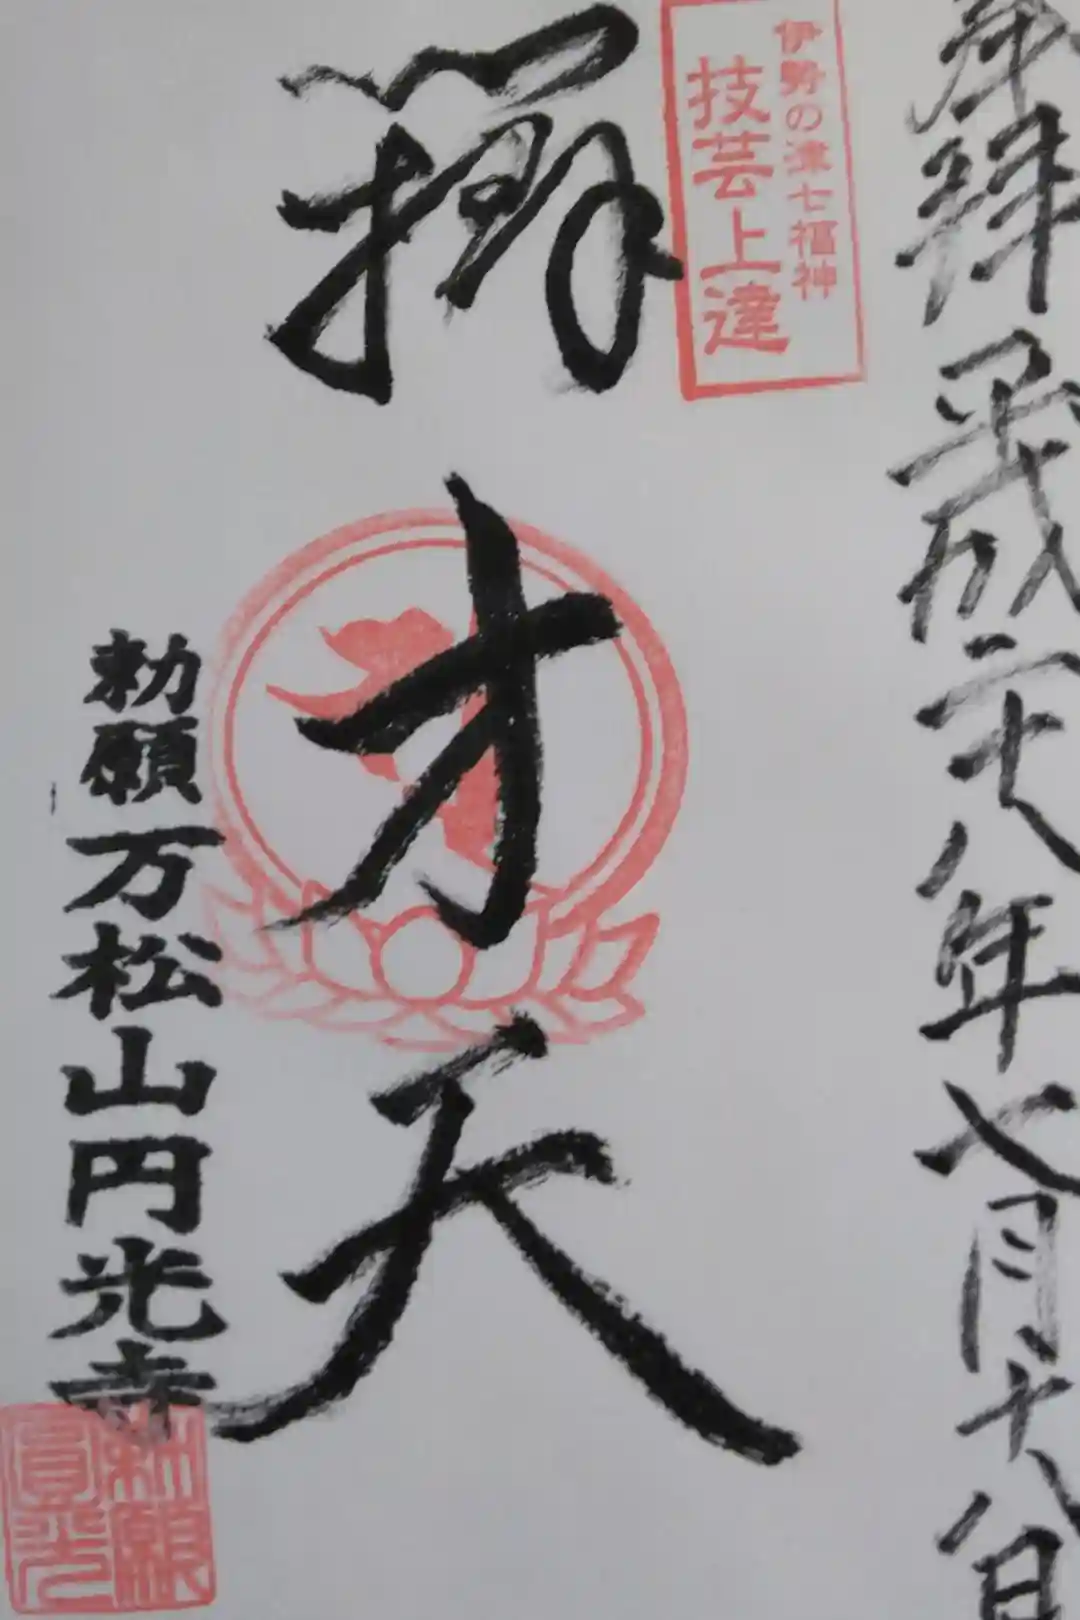 奉拝 平成二十八年七月十八日
伊勢の津七福神
技芸上達
辨才天
勅願 万松山円光寺
勅願
圓光